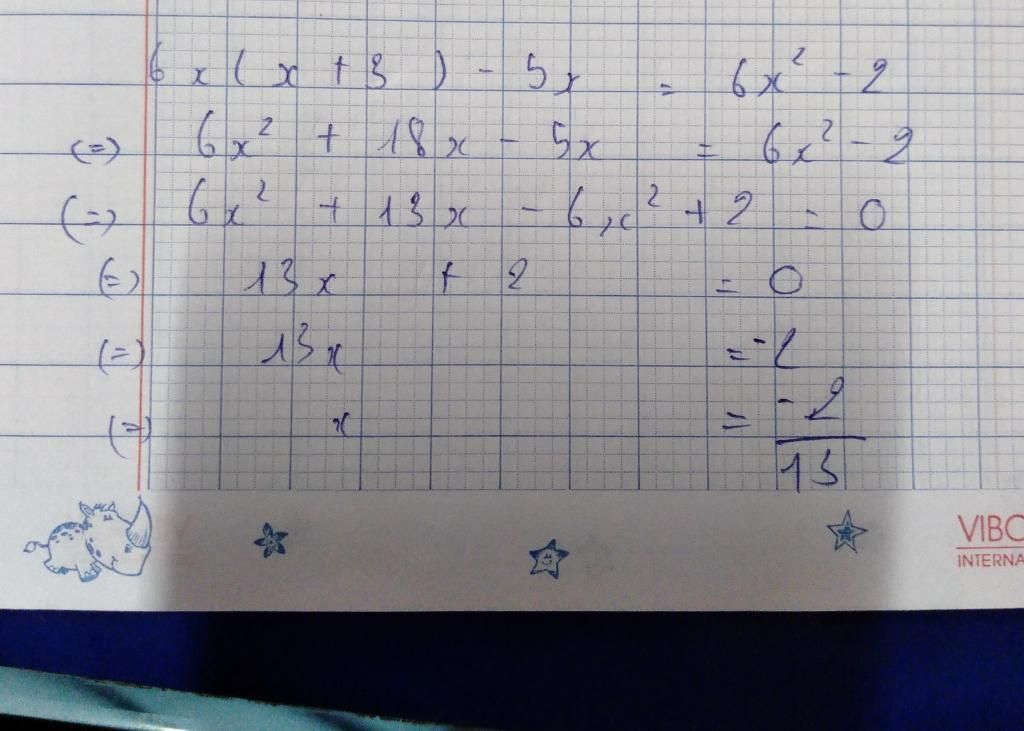 6x(x + 3) - 5x = 6x² - 2
(=) 6x² + 18x - 5x = 6x² - 2
(=) 6x² + 13x - 6x² + 2 = 0
(=) 13x + 2 = 0
(=) 13x = -2
(=) x = -2/13
VIBO
INTERNA